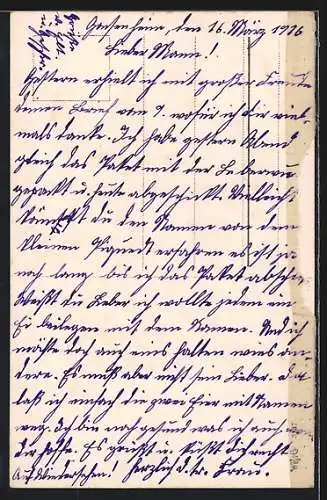 Geisenheim, den 16. März 1916
Lieber Mann!
Gestern erhielt ich mit großer Freude
deinen Brief vom 9. wofür ich dir viel-
mals danke. Ich habe gestern Abend
gleich das Paket mit der Leberwu
gepackt u. heute abgeschickt. Vielleicht
könntest du den Namen von dem
kleinen erfahren es ist ja
noch lang bis ich das Paket abschi
Weißt du Lieber ich wollte jedem ein
Ei beilegen mit dem Namen. Und ich
möchte doch auch eins halten wie's an-
dere. Es muß aber nicht sein Lieber. Da
laß ich einfach die zwei Eier mit Namen
weg. Ich bin noch gesund was ich auch von
dir hoffe. Es grüßt u. küßt dich recht
Auf Wiedersehen! herzlich d. tr. Frau.